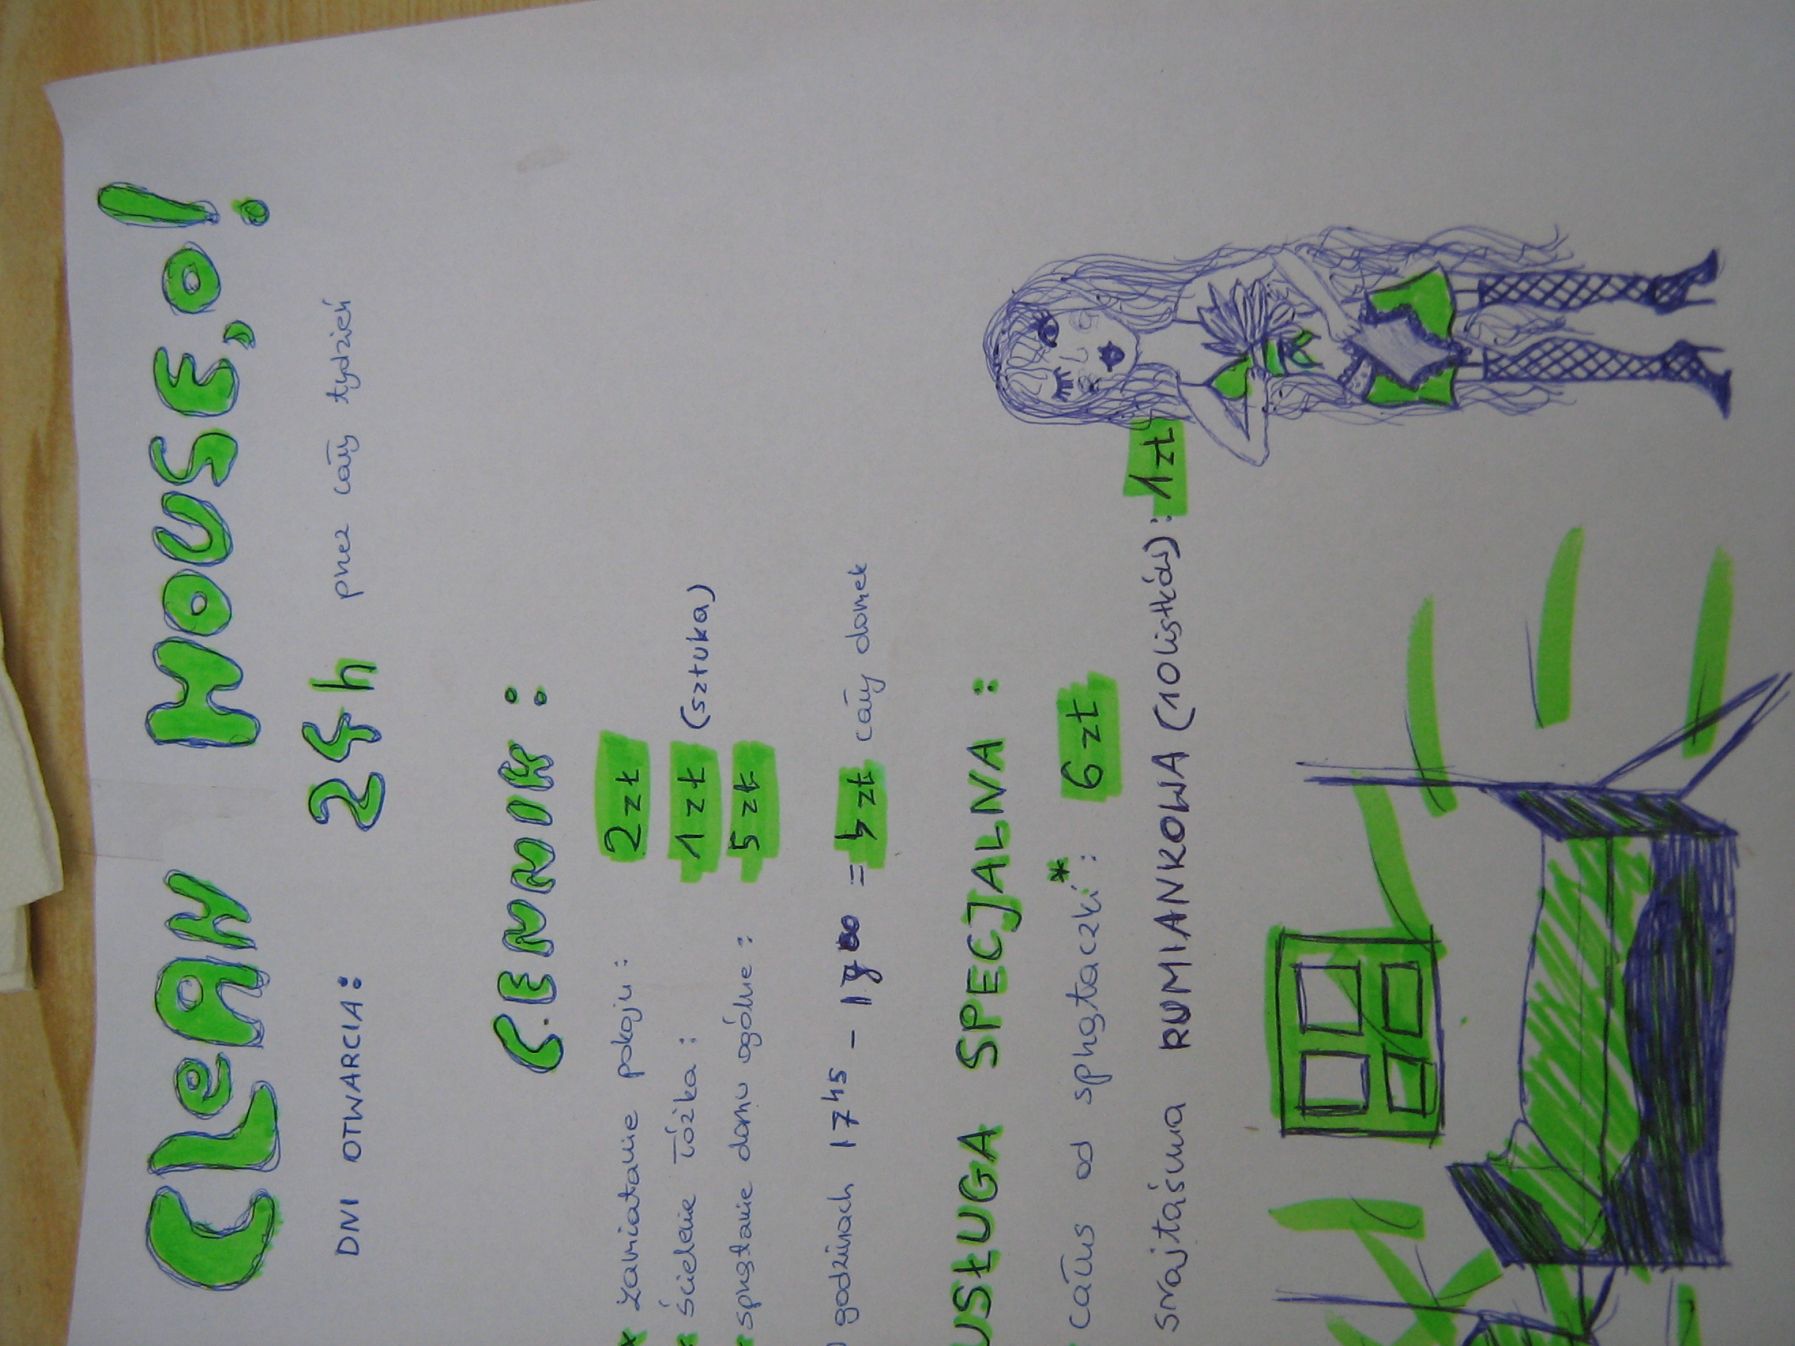 CLeAN HOUSE, o!
DNI OTWARCIA: 24 h przez cały tydzień
CENNIK:
* zamiatanie pokoju: 2 zł
* ścielenie łóżka: 1 zł (sztuka)
* sprzątanie domu ogólne: 5 zł
godzinach 17⁴⁵ - = zł cały domek
USŁUGA SPECJALNA:
całus od sprzątaczki*: 6 zł
srajtaśma RUMIANKOWA (10 listków): 1 zł